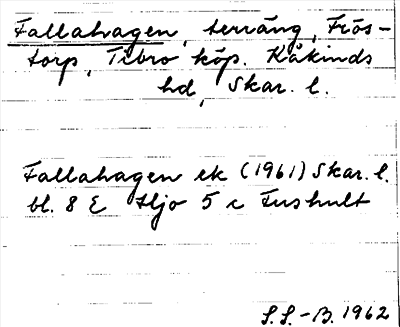 Fallahagen, terräng, Frös-
torp, Tibro köp. Kåkinds
hd, Skar. l.
Fallahagen ek (1961) Skar. l.
bl. 8 E Hjo 5 c Fushult
S.S.-B. 1962